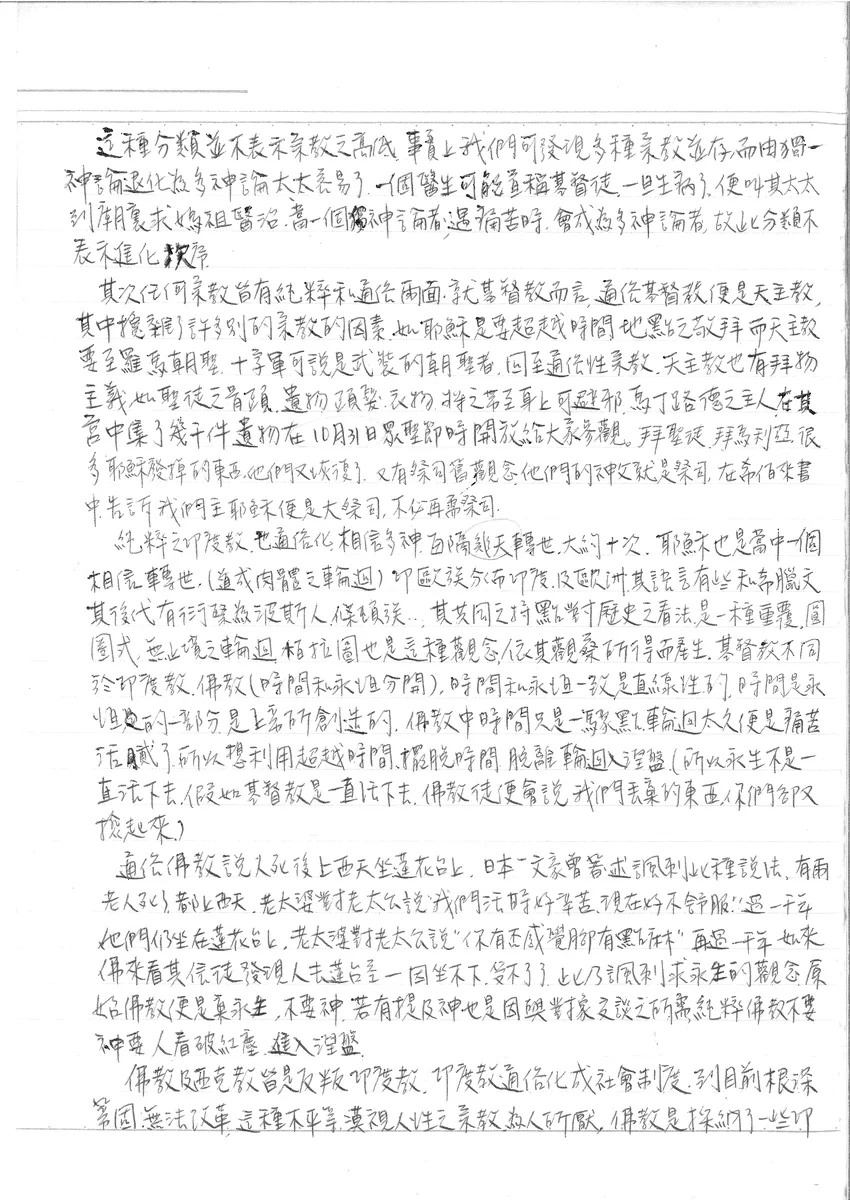 這種分類並不表示宗教之高低,事實上我們可發現多種宗教並存,而由獨一
神論退化為多神論太太容易了.一個醫生可能宣稱基督徒,一旦生病了,便叫其太太
到廟裏求媽祖醫治.當一個獨神論者,遇痛苦時,會成為多神論者,故此分類不
表示進化次序.
其次任何宗教皆有純粹和通俗兩面.就基督教而言,通俗基督教便是天主教,
其中攙雜了許多別的宗教的因素.如耶穌是要超越時間地點之敬拜而天主教
要至羅馬朝聖,十字軍可說是武裝的朝聖者,因至通俗性宗教.天主教也有拜物
主義如聖徒之骨頭,遺物頭髮.衣物.將之帶至身上可避邪,馬丁路德之主人,在其
宮中集了幾千件遺物在10月31日眾聖節時開放給大家參觀。拜聖徒,拜馬利亞,很
多耶穌發掉的東西,他們又恢復了.又有祭司舊觀念,他們的神父就是祭司,在希伯來書
中,告訴我們主耶穌便是大祭司,不必再需祭司.
純粹之印度教,也通俗化,相信多神,百隔幾天轉世.大約十次.耶穌也是當中一個
相信轉世.(造成肉體之輪迴)印歐族分佈印度,及歐洲,其語言有些和希臘文
其後代有衍變為波斯人,條頓族...,其共同之特點對歷史之看法,是一種重覆,圓
圈式,無止境之輪迴,柏拉圖也是這種觀念,依其觀察所得而產生.基督教不同
於印度教.佛教(時間和永恒分開),時間和永恒一致是直線性的,時間是永
恒的一部分,是上帝所創造的,佛教中時間只是一點,輪迴太久便是痛苦
活膩了,所以想利用超越時間,擺脫時間 脫離輪迴入涅盤.(所以永生不是一
直活下去.假如基督教是一直活下去.佛教徒便會說,我們丟棄的東西,你們卻又
撿起來.)
通俗佛教說人死後上西天坐蓮花台上,日本一文豪曾著述諷刺此種說法,有兩
老人死了,都上西天.老太婆對老太公說"我們活時好辛苦,現在好不舒服!"過一千年
他們仍坐在蓮花台上,老太婆對老太公說"你有否感覺腳有點麻木"再過一千年如來
佛來看其信徒發現人去蓮台空一因坐不下,受不了,此乃諷刺求永生的觀念,原
始佛教便是棄永生,不要神.若有提及神也是因與對象交談之所需,純粹佛教不要
神要人看破紅塵.進入涅盤.
佛教及西克教皆是反叛印度教.印度教通俗化成社會制度.到目前根深
蒂固,無法改革,這種不平等,漠視人性之宗教,為人所厭,佛教是採納了一些印